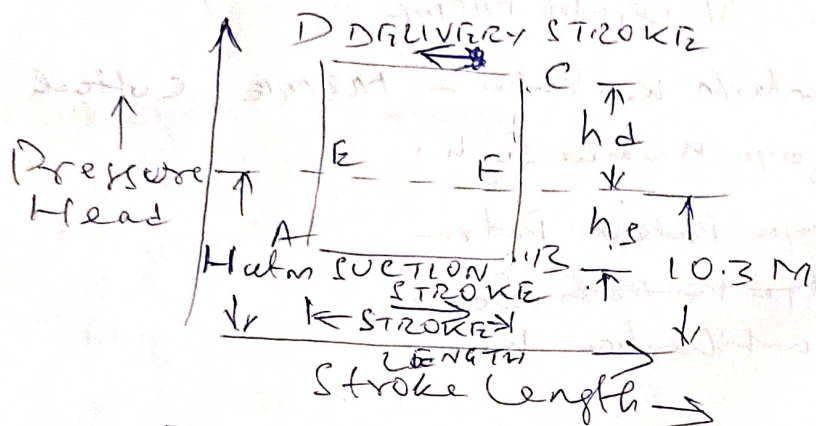 D DELIVERY STROKE
C
hd
E F
Pressure
Head
hs
A
Hatm SUCTION B 10.3 M
STROKE
STROKE
LENGTH
Stroke Length